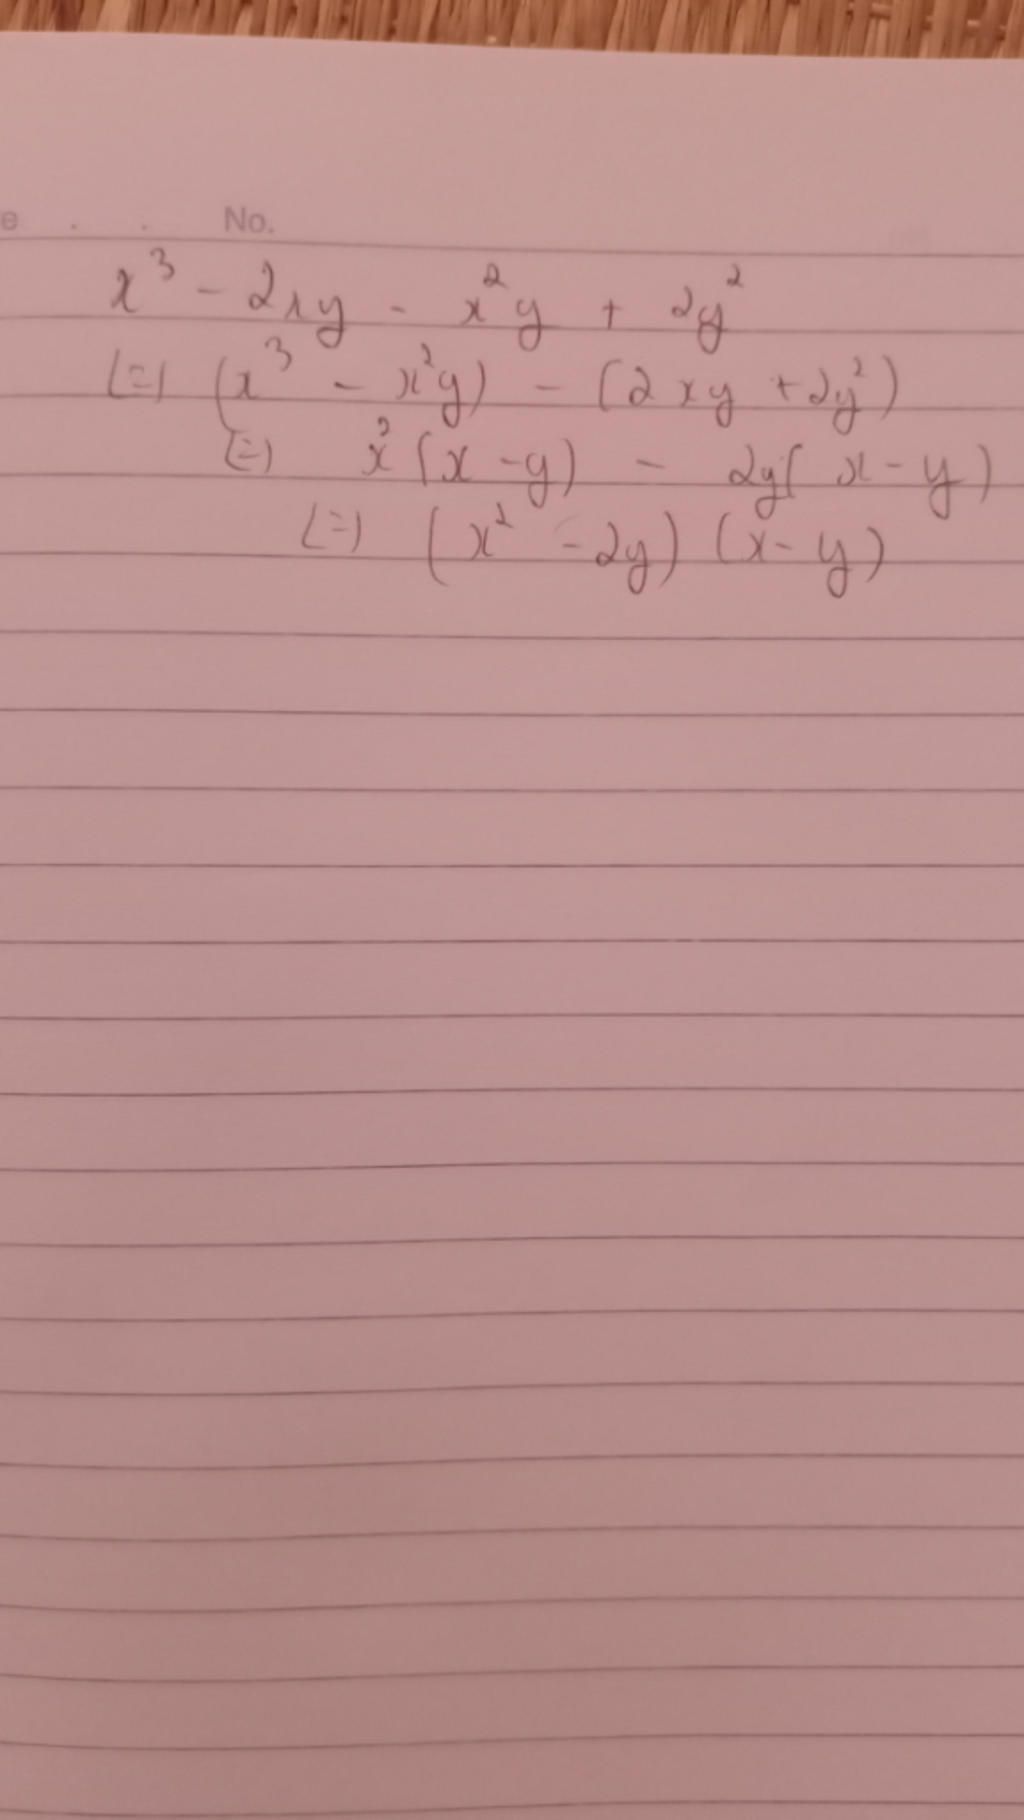 e . . No.
x³ - 2xy - x²y + 2y²
(=) (x³ - x²y) - (2xy + 2y²)
(=) x²(x - y) - 2y(x - y)
(=) (x² - 2y) (x - y)